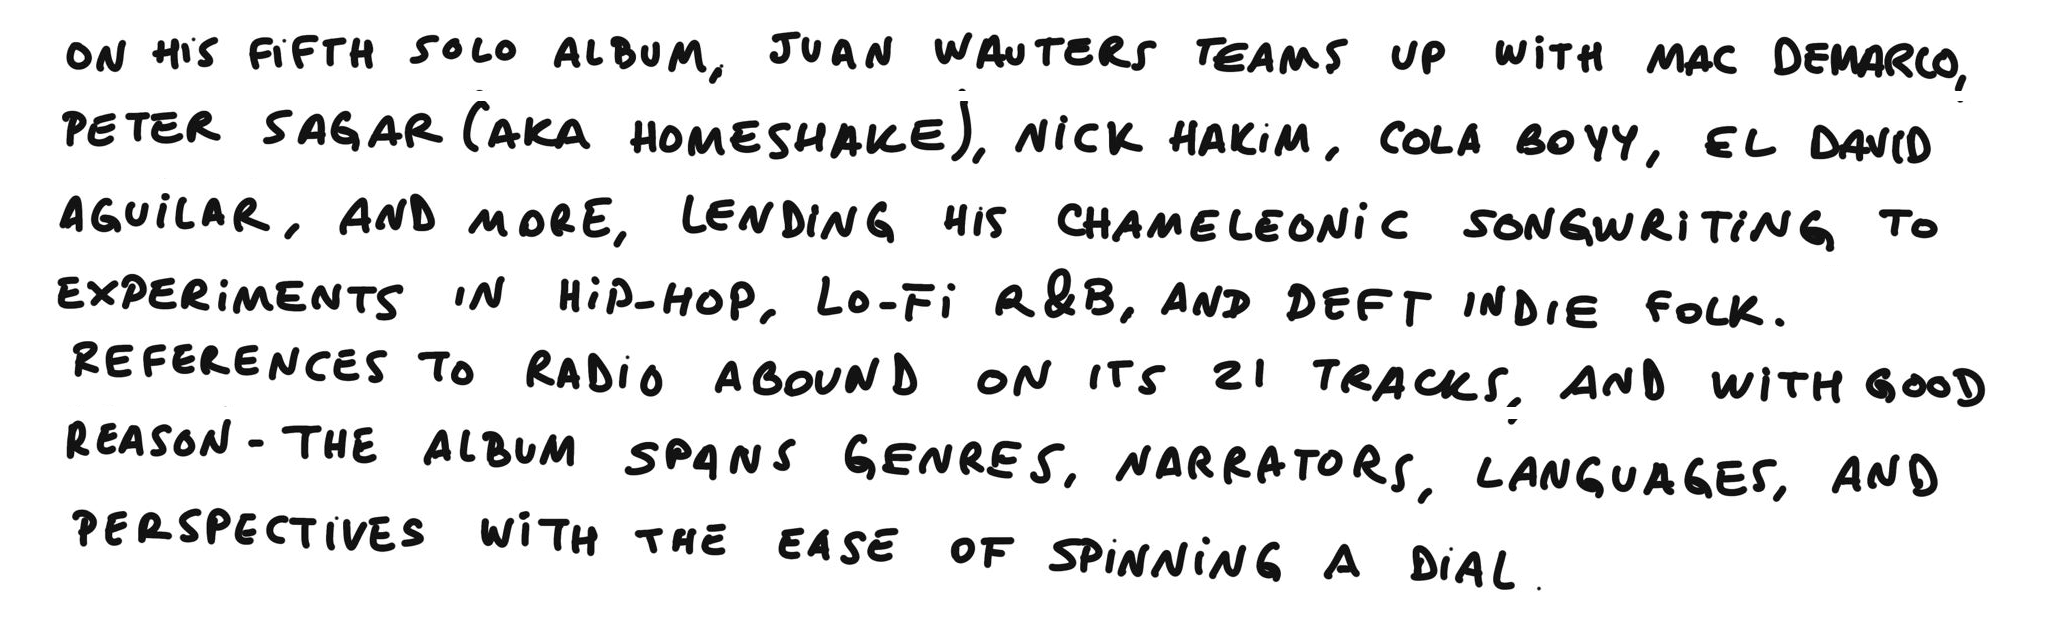 ON HiS FiFTH SOLO ALBUM, JUAN WAUTERS TEAMS UP WiTH MAC DEMARCO,
PETER SAGAR (AKA HOMESHAKE), NiCK HAKiM, COLA BOYY, EL DAVID
AGUiLAR, AND MORE, LENDiNG HiS CHAMELEONiC SONGWRiTiNG TO
EXPERiMENTS IN HiP-HOP, LO-Fi R&B, AND DEFT INDIE FOLK.
REFERENCES TO RADiO ABOUND ON ITS 21 TRACKS, AND WiTH GOOD
REASON - THE ALBUM SPANS GENRES, NARRATORS, LANGUAGES, AND
PERSPECTiVES WiTH THE EASE OF SPiNNiNG A DiAL.